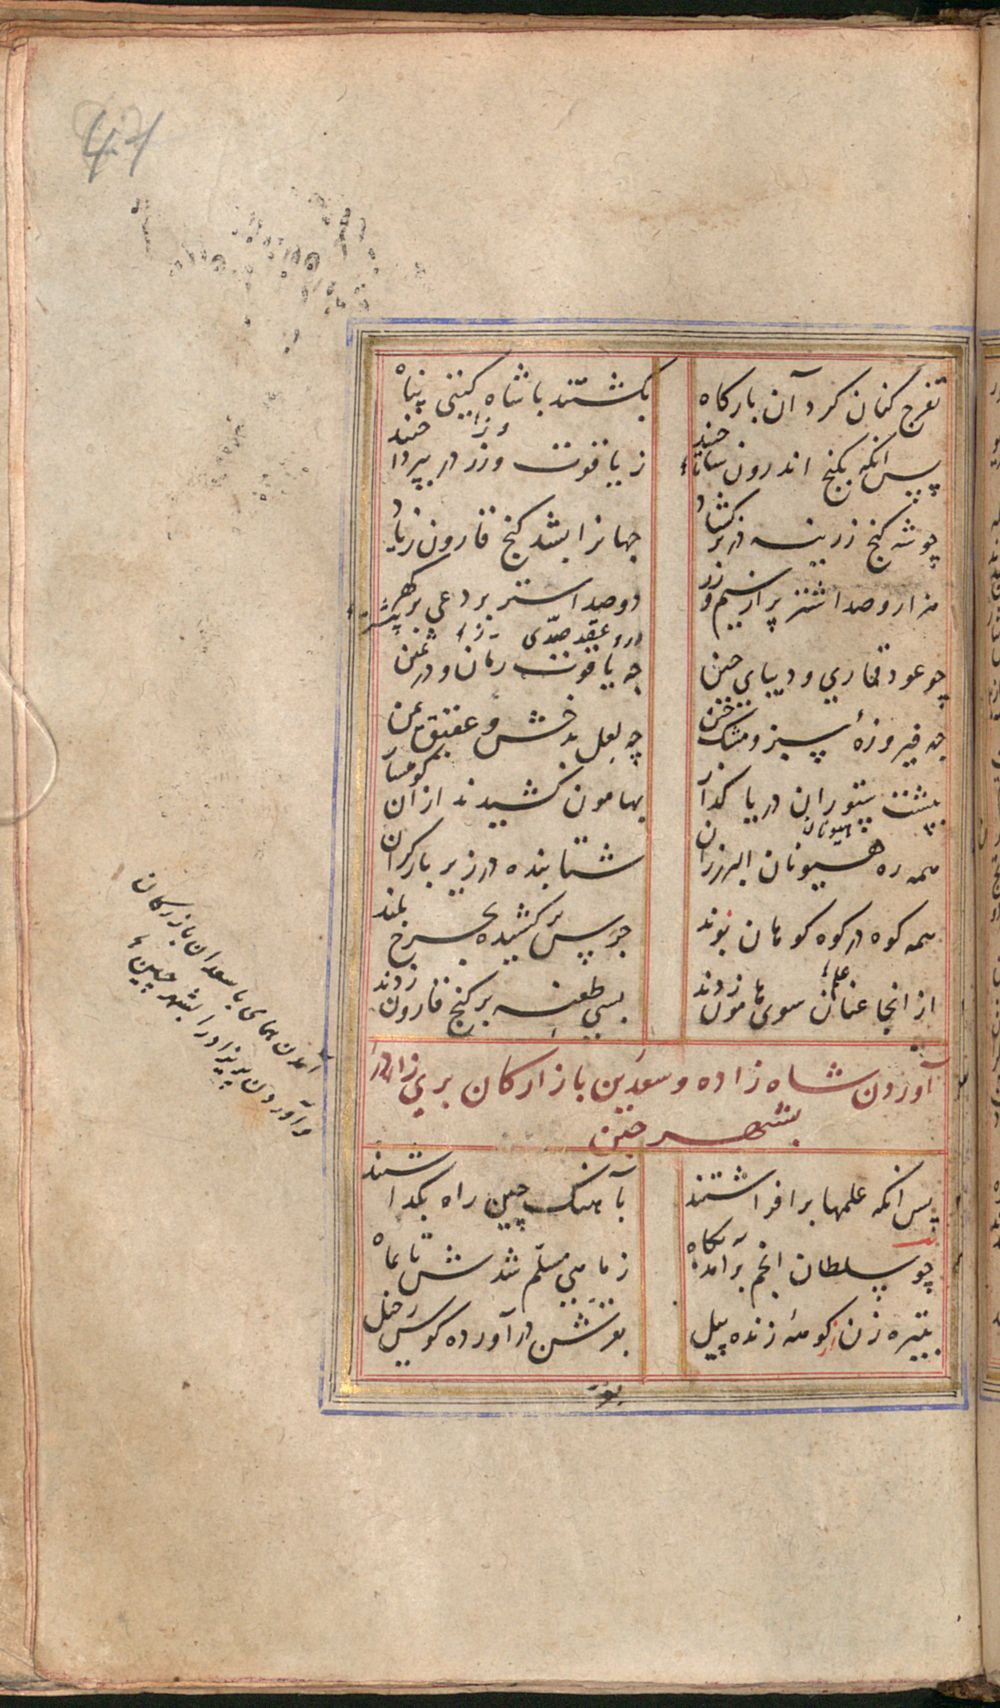 تفرج کنان کرد آن بارکاه
بکشتند با شاه کیتی پناه
پس آنکه بکنج اندرون ساختند
ز یاقوت وزر در بپرداختند
چو شه کنج زرینه در برکشاد
جهانرا بشد کنج قارون زیاد
هزار و صد اشتر پر از سیم و زر
دو صد استر بردعی پر کهر
چو عود قماری و دیبای چین
چه یاقوت رمان و در ثمین
چه فیروزهٔ سبز و مشک ختن
چه لعل بدخش و عقیق یمن
بپشت ستوران دریا کذار
بهامون کشیدند از ان کوهسار
همه ره هیونان البرز ران
شتابنده در زیر بار کران
همه کوه در کوه کوهان بوند
جرس برکشیده بچرخ بلند
از انجا عنان سوی هامون زدند
بسی طعنه بر کنج قارون زدند
آوردن شاه زاده و سعدین بازارکان پری زاد را
بشهر چین
پس آنکه علمها برافراشتند
بآهنک چین راه بکذاشتند
چو سلطان انجم برآمد بکاه
ز ماهی مسلم شدش تا بماه
تبیره زن از کوههٔ زنده پیل
بغرش در آورده کوس رحیل
آمدن همای با سعدان بازرکان
و آوردن پریزاد را بشهر چین